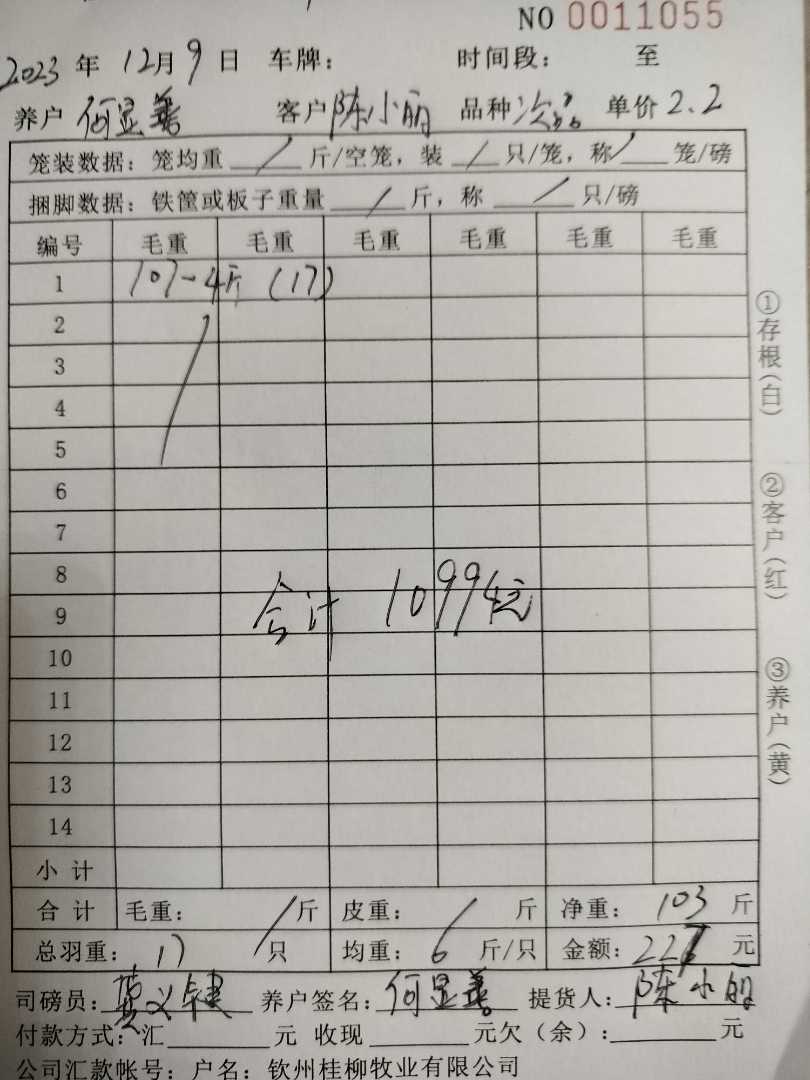 NO 0011055
2023年 12月9日 车牌： 时间段： 至
养户 何显善 客户 陈小丽 品种 次品 单价 2.2
笼装数据：笼均重 / 斤/空笼，装 / 只/笼，称 / 笼/磅
捆脚数据：铁筐或板子重量 / 斤，称 / 只/磅
编号 毛重 毛重 毛重 毛重 毛重 毛重
1 107-4斤 (17)
2
3
4
5
6
7
8
合计 1099元
9
10
11
12
13
14
小 计
合 计 毛重： / 斤 皮重： / 斤 净重： 103 斤
总羽重： 17 只 均重： 6 斤/只 金额： 227 元
司磅员： 养户签名： 何显善 提货人： 陈小丽
付款方式：汇 元 收现 元欠（余）： 元
公司汇款帐号：户名：钦州桂柳牧业有限公司
①存根（白）
②客户（红）
③养户（黄）